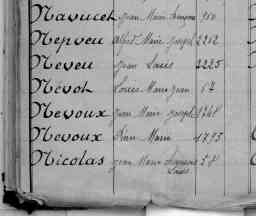 Navucet Jean Marie François 950
Nepveu Albert Marie Joseph 2212
Neveu Jean Louis 2225
Névot Louis Marie Jean 67
Nevoux Jean Marie Joseph 1748
Nevoux Jean Marie 1793
Nicolas Jean Marie François 58
Louis